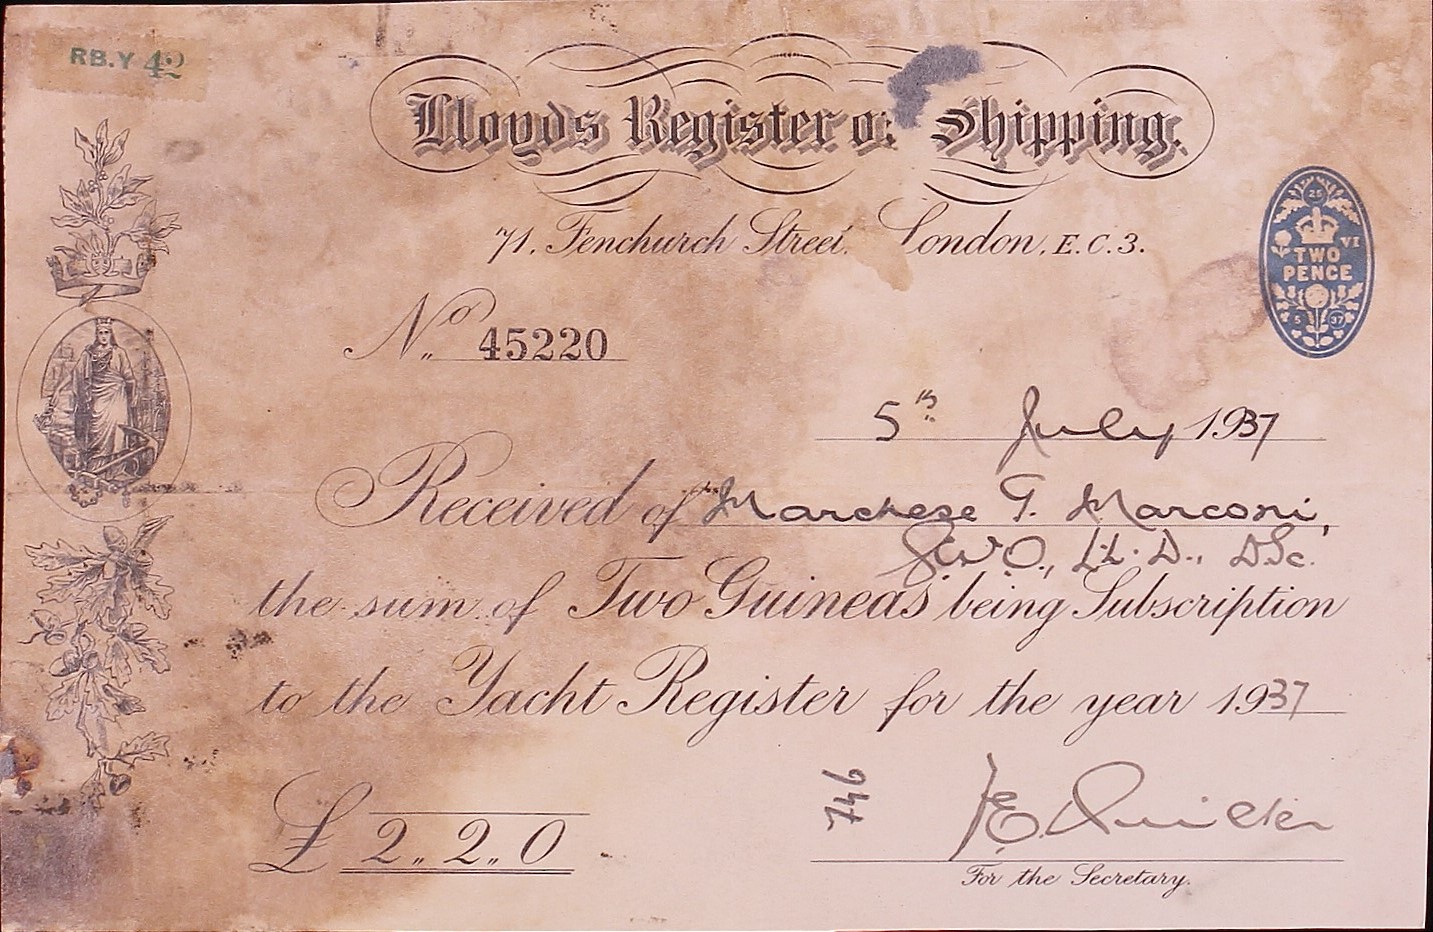 RB.Y 42
Lloyds Register o: Shipping.
71, Fenchurch Street, London, E.C.3.
25
VI
TWO
PENCE
5 37
No. 45220
5th July 1937
Received of Marchese G. Marconi,
G.C.V.O., LL.D., D.Sc.
the sum of Two Guineas being Subscription
to the Yacht Register for the year 1937
£ 2 „ 2 „ 0
746
For the Secretary.